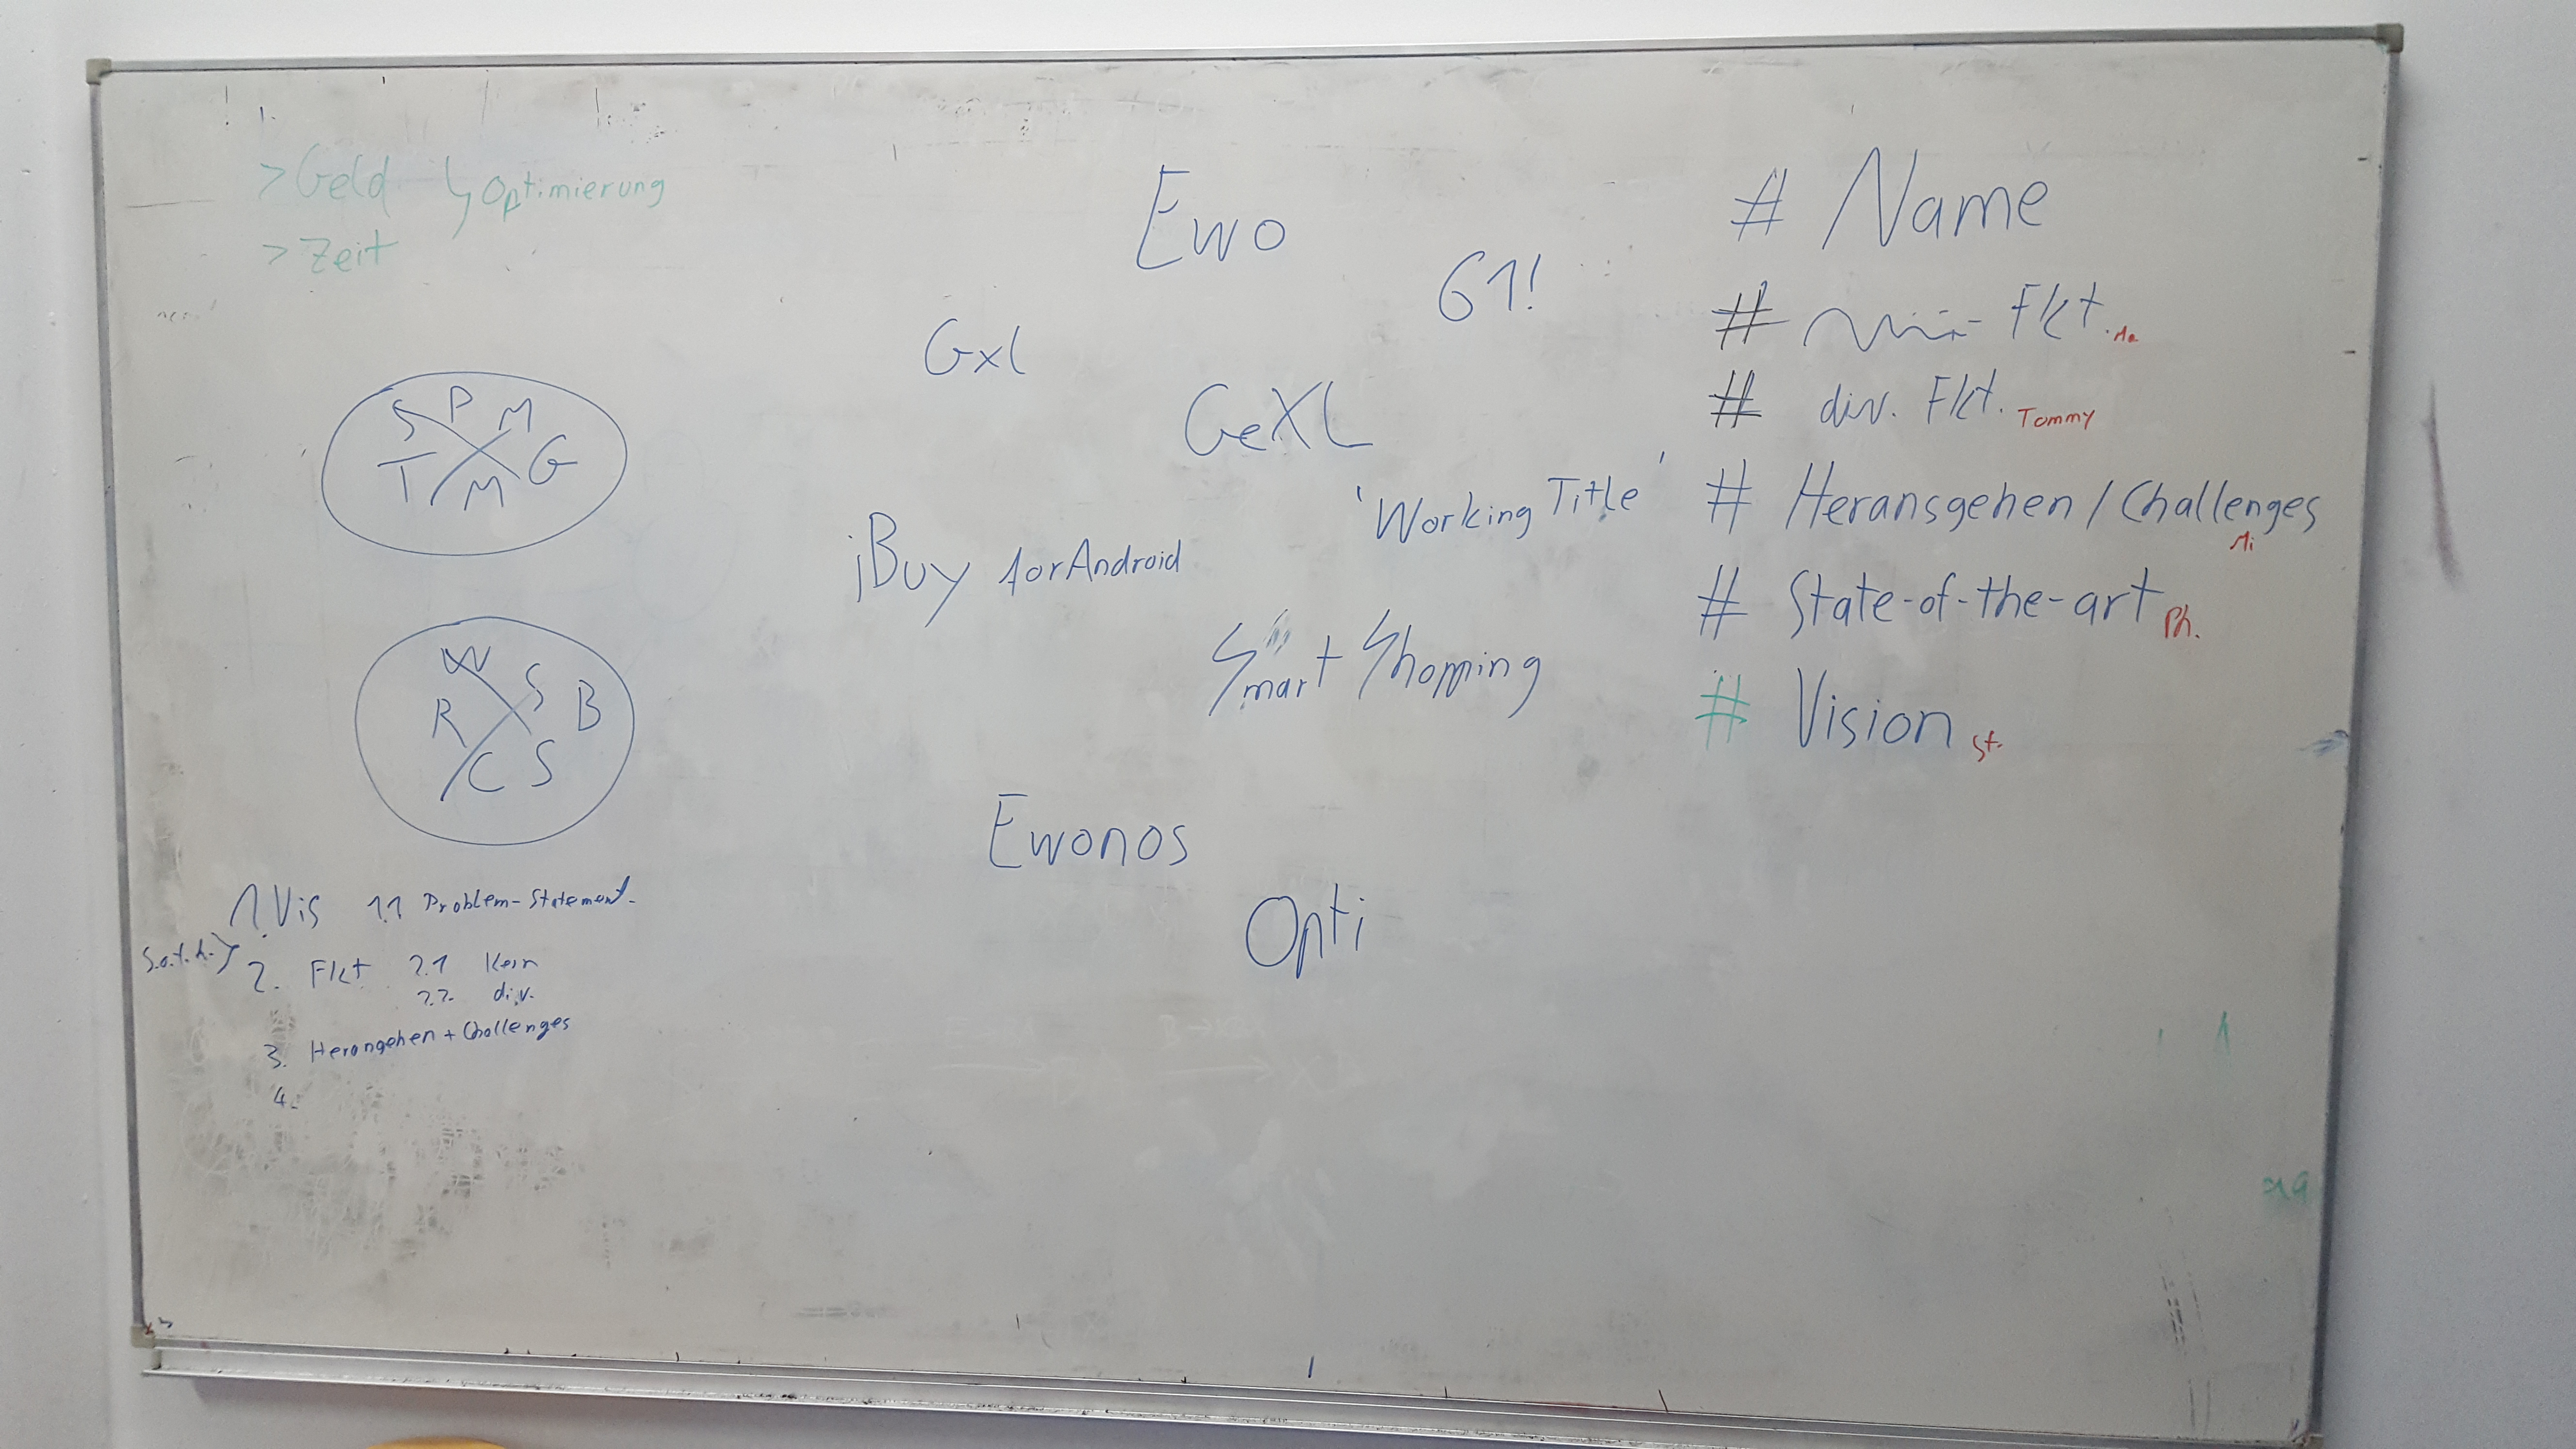 > Geld ↳ Optimierung
> Zeit
S P M
T M G
W S B
R C S
1. Vis 1.1 Problem-Statement
S.o.t.A.
2. Fkt 2.1 Kern
2.2 div.
3. Herangehen + Challenges
4.
Ewo
G1!
Gxl
GeXL
'Working Title'
iBuy for Android
Smart Shopping
Ewonos
Opti
# Name
# Fkt. Ma
# div. Fkt. Tommy
# Heransgehen / Challenges
Mi
# State-of-the-art Ph.
# Vision St.